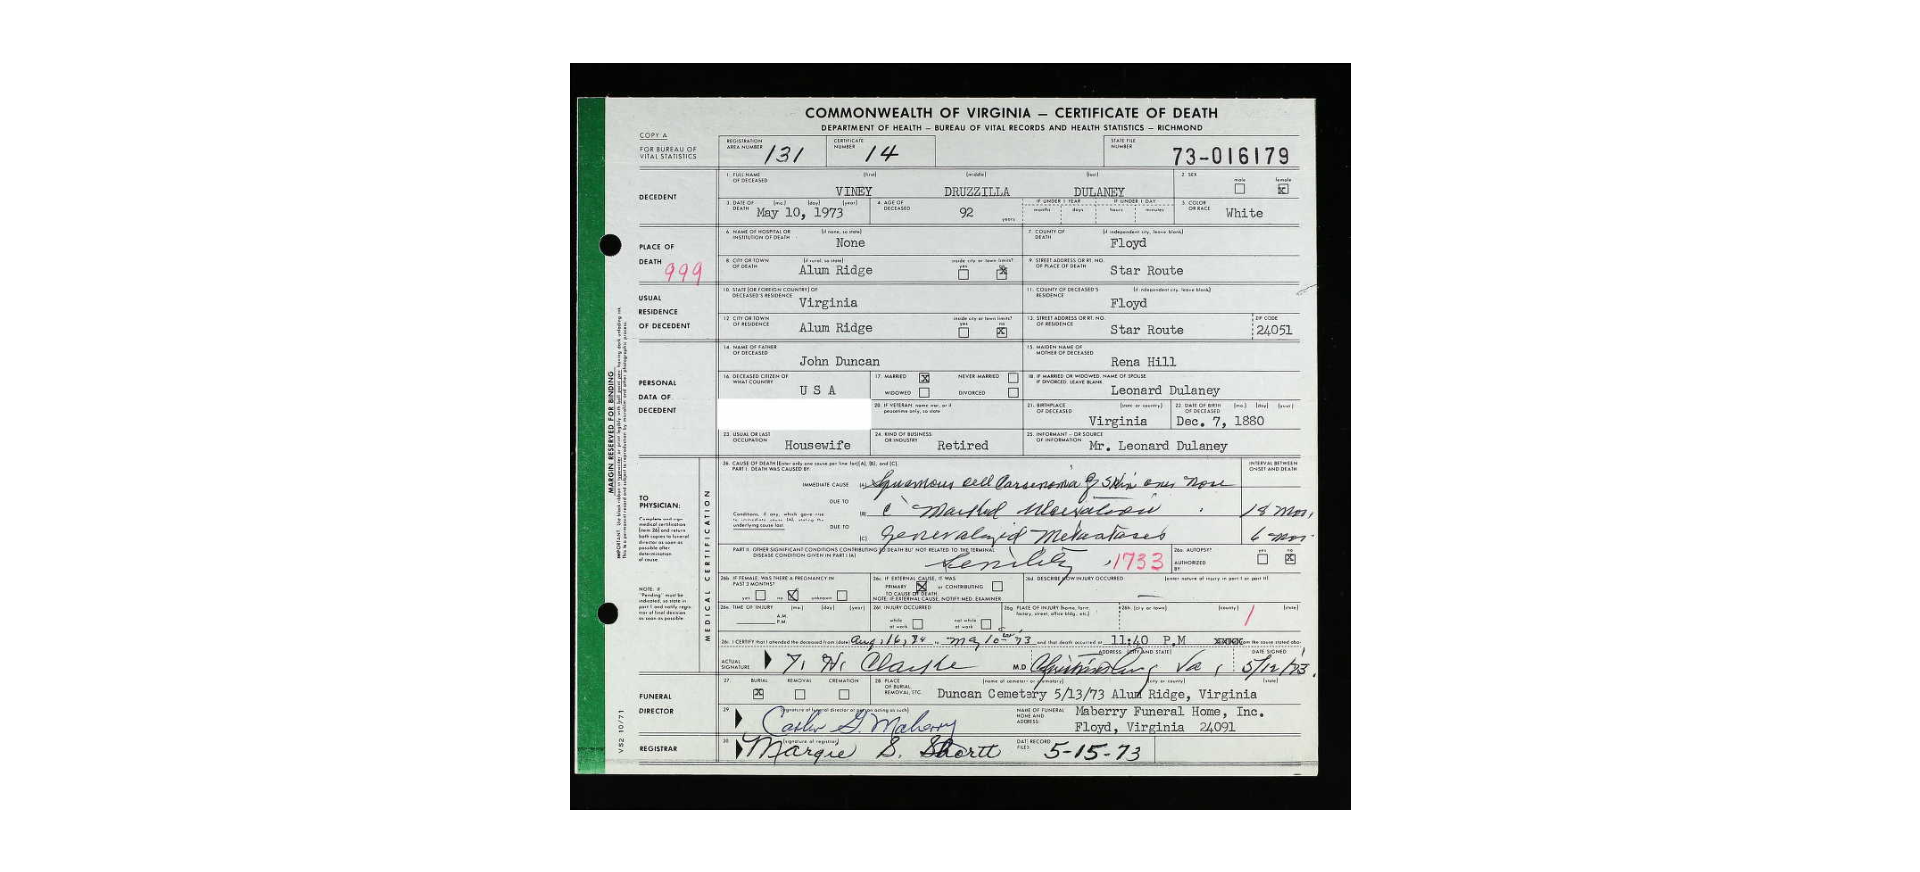 COMMONWEALTH OF VIRGINIA — CERTIFICATE OF DEATH
DEPARTMENT OF HEALTH — BUREAU OF VITAL RECORDS AND HEALTH STATISTICS — RICHMOND
COPY A
FOR BUREAU OF VITAL STATISTICS
REGISTRATION AREA NUMBER 131 CERTIFICATE NUMBER 14 STATE FILE NUMBER 73-016179
DECEDENT
1. FULL NAME OF DECEASED (first) (middle) (last) 2. SEX male female
VINEY DRUZZILLA DULANEY
3. DATE OF DEATH (mo.) (day) (year) May 10, 1973 4. AGE OF DECEASED 92 years IF UNDER 1 YEAR months days IF UNDER 1 DAY hours minutes 5. COLOR OR RACE White
PLACE OF DEATH 999
6. NAME OF HOSPITAL OR INSTITUTION OF DEATH (if none, so state) None 7. COUNTY OF DEATH (if independent city, leave blank) Floyd
8. CITY OR TOWN OF DEATH (if rural, so state) Alum Ridge inside city or town limits? yes no 9. STREET ADDRESS OR RT. NO. OF PLACE OF DEATH Star Route
USUAL RESIDENCE OF DECEDENT
10. STATE (OR FOREIGN COUNTRY) OF DECEASED'S RESIDENCE Virginia 11. COUNTY OF DECEASED'S RESIDENCE (if independent city, leave blank) Floyd
12. CITY OR TOWN OF RESIDENCE Alum Ridge inside city or town limits? yes no 13. STREET ADDRESS OR RT. NO. OF RESIDENCE Star Route ZIP CODE 24051
PERSONAL DATA OF DECEDENT
14. NAME OF FATHER OF DECEASED John Duncan 15. MAIDEN NAME OF MOTHER OF DECEASED Rena Hill
16. DECEASED CITIZEN OF WHAT COUNTRY U S A 17. MARRIED NEVER MARRIED WIDOWED DIVORCED 18. IF MARRIED OR WIDOWED, NAME OF SPOUSE IF DIVORCED, LEAVE BLANK Leonard Dulaney
20. IF VETERAN, name war, or if peacetime only, so state 21. BIRTHPLACE OF DECEASED (state or country) Virginia 22. DATE OF BIRTH OF DECEASED (mo.) (day) (year) Dec. 7, 1880
23. USUAL OR LAST OCCUPATION Housewife 24. KIND OF BUSINESS OR INDUSTRY Retired 25. INFORMANT — OR SOURCE OF INFORMATION Mr. Leonard Dulaney
MARGIN RESERVED FOR BINDING
MEDICAL CERTIFICATION
TO PHYSICIAN:
NOTE: If "Pending" must be indicated, so state in part I and notify registrar of final decision as soon as possible
26. CAUSE OF DEATH (Enter only one cause per line for (A), (B), and (C). INTERVAL BETWEEN ONSET AND DEATH
PART I. DEATH WAS CAUSED BY:
IMMEDIATE CAUSE (A) Squamous cell Carcinoma of skin over nose
DUE TO
(B) c Marked Ulceration 18 Mos.
DUE TO
(C) Generalized Metastases 6 mos.
Conditions, if any, which gave rise to immediate cause (A), stating the underlying cause last.
PART II. OTHER SIGNIFICANT CONDITIONS CONTRIBUTING TO DEATH BUT NOT RELATED TO THE TERMINAL DISEASE CONDITION GIVEN IN PART I(A)
Senility 1733 26a. AUTOPSY? yes no AUTHORIZED BY:
26b. IF FEMALE, WAS THERE A PREGNANCY IN PAST 3 MONTHS? yes no unknown 26c. IF EXTERNAL CAUSE, IT WAS PRIMARY or CONTRIBUTING TO CAUSE OF DEATH NOTE: IF EXTERNAL CAUSE, NOTIFY MED. EXAMINER 26d. DESCRIBE HOW INJURY OCCURRED (enter nature of injury in part I or part II)
26e. TIME OF INJURY (mo.) (day) (year) A.M. P.M. 26f. INJURY OCCURRED while at work not while at work 26g. PLACE OF INJURY (home, farm, factory, street, office bldg., etc.) 26h. (city or town) (county) (state) 1
I CERTIFY that I attended the deceased from (date) Aug. 16, 72 to May 10 73 and that death occurred at 11:40 P.M
ACTUAL SIGNATURE M.D Christiansburg Va. ADDRESS (CITY AND STATE) DATE SIGNED 5/12/73
FUNERAL DIRECTOR
27. BURIAL REMOVAL CREMATION 28. PLACE OF BURIAL, REMOVAL, ETC. (name of cemetery or crematory) (city or county) (state) Duncan Cemetery 5/13/73 Alum Ridge, Virginia
29. (signature of funeral director or person acting as such) G. Maberry NAME OF FUNERAL HOME AND ADDRESS: Maberry Funeral Home, Inc.
Floyd, Virginia 24091
REGISTRAR
30. (signature of registrar) Margie S. Shortt DATE RECORD FILED: 5-15-73
VS2 10/71